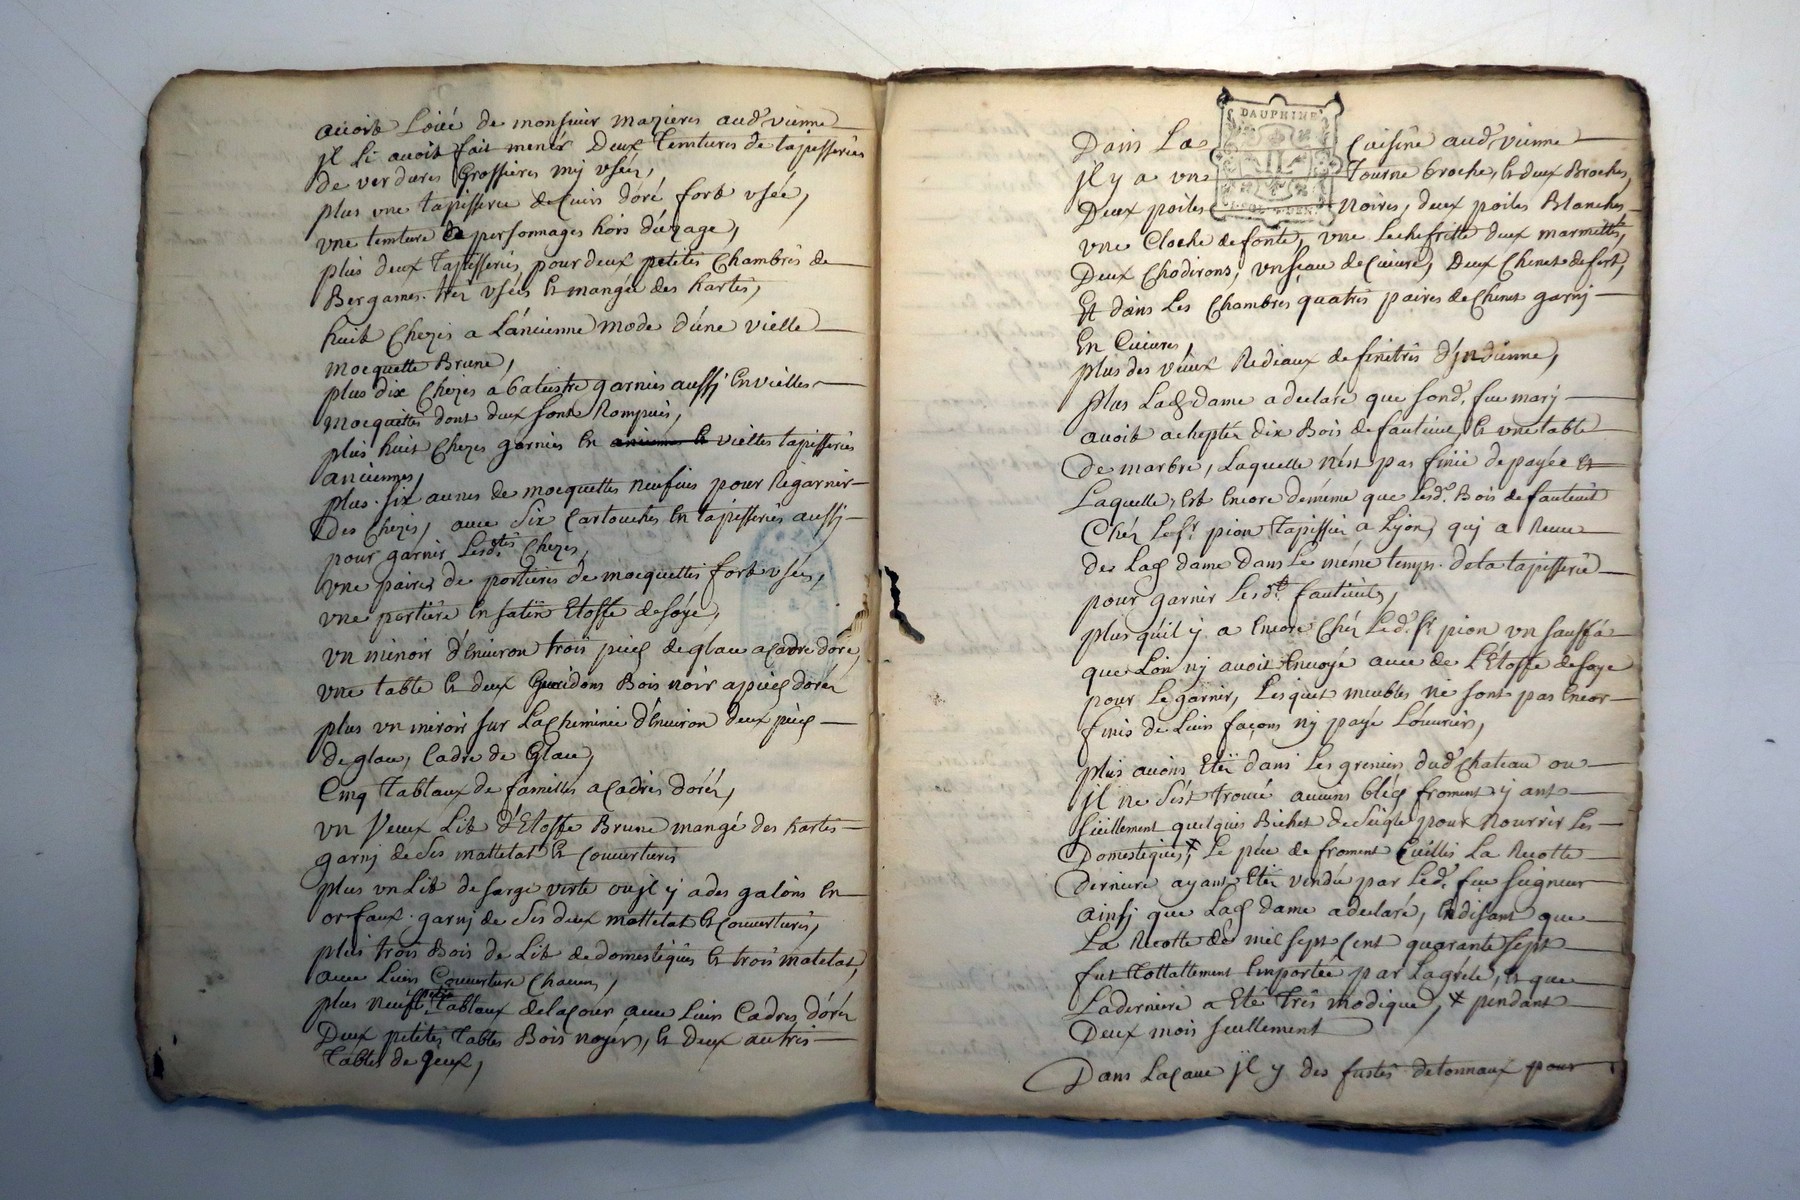 avoit Loüé de monsieur mazieres aud.t vienne
jl li avoit fait menér Deux Temtures de tapisseries
de verdures Grossieres mij vsées,
plus vne tapisserie de Cuirs doré fort vsée,
vne temture de personnages hors d'éuzage,
plus deux Tapisseries pour deux petites Chambres de
Bergames trez vsées & mangée des hartes,
huit Chezes a L'áncienne mode d'úne vielle
mocquette Brune,
plus dix Chezes a balustre garnies aussj En vielles
mocquettes dont deux sont Rompues,
plus huit Chezes garnies En vielles tapisseries
anciennes,
plus six aunes de mocquettes neufves pour Regarnir
Des Chezes, avec Six Cartouches En tapisseries aussj
pour garnir Lesd.tes Chezes,
vne paires de portieres de mocquettes fort vsées,
vne portiere En satin Etoffe de soÿe,
vn miroir d'Environ trois pieds de glace a Cadre doré,
vne table & deux Gueridons Bois noir a pieds dorés
plus vn miroir sur La Cheminée d'Environ deux pieds
de glace, Cadre de Glace,
Cinq Tableaux de familles a Cadres dorés,
vn Vieux Lit d'Etoffe Brune mangé des hartes
garnj de Ses mattelat & Couvertures
plus vn Lit de sarge verte ou jl y a des galons En
or faux garnj de Ses deux mattelat & Couvertures,
plus trois Bois de Lit de domestiques & trois matelat,
avec Leurs Couverture Chacun,
plus neuf petits Tableaux de la Cour avec Leurs Cadres dorés
Deux petites Tables Bois noyer, & Deux autres
Tables de Jeux,
DAUPHINÉ
Dans La Cuisine aud.t vienne
jl y a vne Tourne broche, & deux Broches,
Deux poiles noires, deux poiles Blanches
vne Cloche de fonte, vne Lechefritte deux marmittes,
Deux Chodirons, vn seau de Cuivre, Deux Chenet de fert,
Et dans Les Chambres quatres paires de Chenet garnj
En Cuivres,
plus des vieux Rediaux de finêtres d'jndienne,
Plus Lad dame a declaré que sond. feu marj
avoit achepter dix Bois de fauteuil, & vne table
De marbre, Laquelle n'est pas finie de payée Et
Laquelle, Est Encore de même que Lesd.t Bois de fauteuil
Chéz Le S.r pion Tapissier a Lyon, quj a Receu
de Lad dame dans Le même temps de la tapisserie
pour garnir Lesd.ts fauteuils,
plus qu'il y a Encore Chéz Led. S.r pion vn sauffá
que Lon nj avoit Envoyé avec de L'Etoffe de soye
pour Le garnir, Lesquels meubles ne sont pas Encor
finis de Leurs façons nj payé L'óuvrier,
Plus avons Etéz dans Les greniers dud.t Chateau ou
jl ne s'ést trouvé aucuns bléd froment y ant
seüllement quelques Bichet de Seigle pour nourrir Les
Domestiques, + Le peu de froment Cüéillis La Recolte
Derniere ayant Etéz vendu par Led.t feu seigneur
ainsj que Lad dame a declaré, En disant que
La Recolte de mil sept Cent quarante sept
fut Tottallement Emportée par La gréle, & que
La derniere a Eté Trés modique, + pendant
Deux mois seullement
Dans La Cave jl y des fustes de tonnaux pour